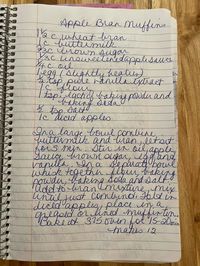 Apple Bran Muffins
1½ c wheat bran
1c buttermilk
⅔c brown sugar
⅓c unsweetened applesauce
¼c oil
1 egg (slightly beaten)
½ tsp pure vanilla extract
1c flour
1 tsp each baking powder and
baking soda
½ tsp salt
1c diced apples
In a large bowl combine
buttermilk and bran, let set
for 5 min. Stir in oil, apple
sauce, brown sugar, egg and
vanilla. In a separate bowl
whisk together flour, baking
powder, baking soda and salt.
Add to bran mixture, mix
until just combined. Fold in
diced apples, place in a
greased or lined muffin tin.
Bake at 375 oven for
makes 12